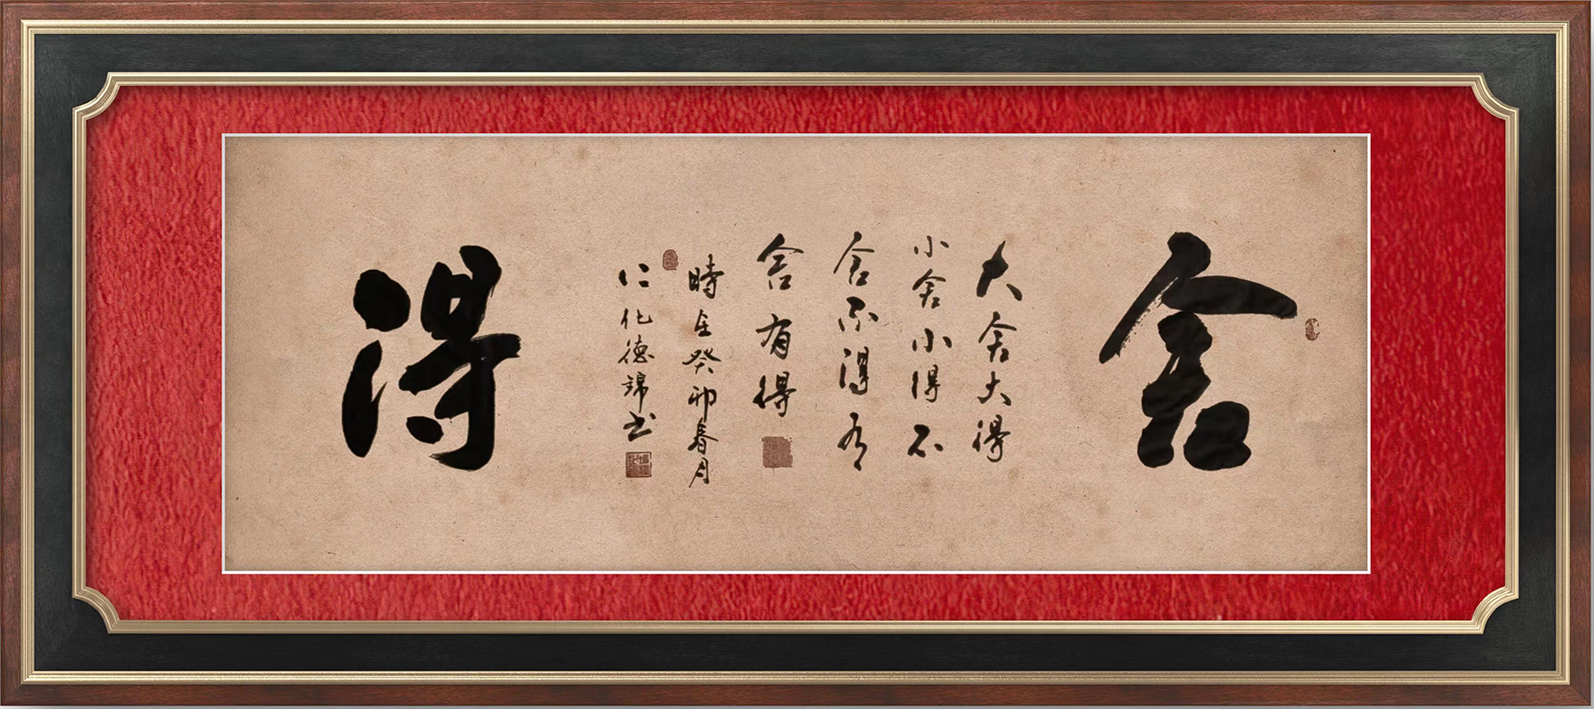 舍
大舍大得
小舍小得不
舍不得有
舍有得
時在癸卯春月
仁化德錦书
得